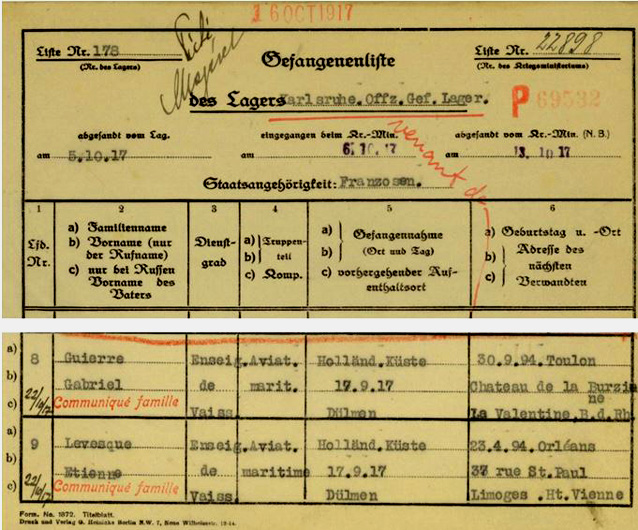 16 OCT 1917
Liste Nr. 178
(Nr. des Lagers)
Liste Nr. 22898
(Nr. des Kriegsministeriums)
Gefangenenliste
des Lagers Karlsruhe. Offz. Gef. Lager.
P 69532
abgesandt vom Lag.
eingegangen beim Kr.-Min.
abgesandt vom Kr.-Min. (N. B.)
am 5.10.17
am 6. 10. 17
am 13. 10 17
venant de
Staatsangehörigkeit: Franzosen.
1 2 3 4 5 6
Lfd. Nr.
a) Familienname
b) Vorname (nur der Rufname)
c) nur bei Russen Vorname des Vaters
Dienstgrad
a) Truppen-
b) teil
c) Komp.
a) Gefangennahme
b) (Ort und Tag)
c) vorhergehender Aufenthaltsort
a) Geburtstag u. -Ort
b) Adresse des
c) nächsten Verwandten
a) 8 Guierre Enseig. Aviat. Holländ. Küste 30.9.94. Toulon
b) Gabriel de marit. 17.9.17 Chateau de la Burzine
c) Communiqué famille Vaiss. Dülmen La Valentine. B.d. Rh.
a) 9 Levesque Enseig. Aviat. Holländ. Küste 23.4.94. Orléans
b) Etienne de maritime 17.9.17 37 rue St. Paul
c) Communiqué famille Vaiss. Dülmen Limoges . Ht. Vienne
Form. No. 1872. Titelblatt.